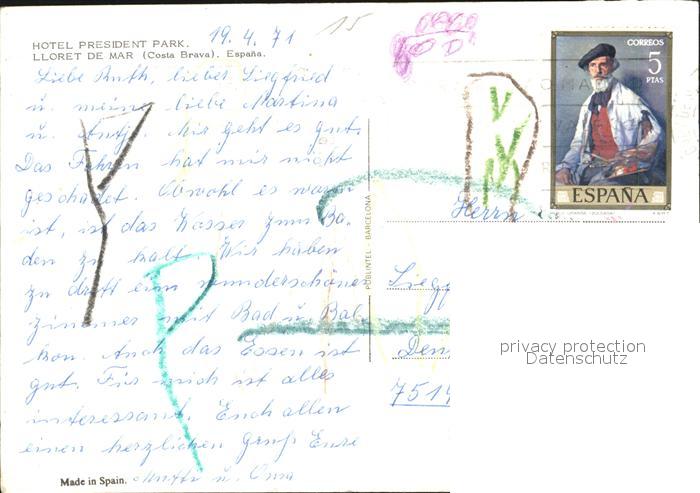 19.4.71
15
HOTEL PRESIDENT PARK.
LLORET DE MAR (Costa Brava). España.
CORREOS
5
PTAS
Liebe Ruth, lieber Siegfried
u. meine liebe Martina
u. Antje. Mir geht es gut.
Das Fahren hat mir nicht
geschadet. Obwohl es warm
ist, ist das Wasser zum Ba-
den zu kalt. Wir haben
zu dritt ein wunderschönes
Zimmer mit Bad u. Bal-
kon. Auch das Essen ist
gut. Für mich ist alles
interessant. Euch allen
einen herzlichen Gruß Eure
Mutti u. Oma
ESPAÑA
PUBLINTEL - BARCELONA
Herrn
Siegf
Den
751
privacy protection
Datenschutz
Made in Spain.